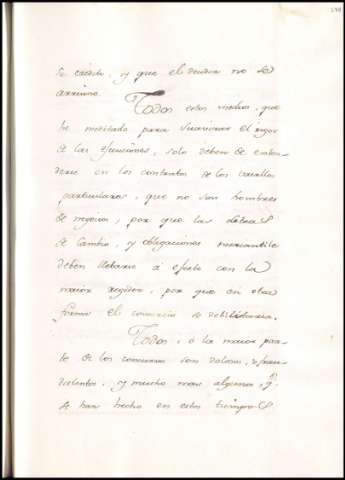 su credito, y que el deudor no se
arruine.
Todos estos medios, que
he meditado para suavizar el rigor
de las ejecuciones, solo deben de enten-
derse en los contratos de los vasallos
particulares, que no son hombres
de negocios, por que las letras
de cambio, y obligaciones mercantiles
deben llebarse a efecto con la
maior rigidez, por que en otra
forma el comercio se debilitaria.
Todos, o la maior par-
te de los concursos son dolosos, o frau-
dulentos, y mucho mas algunos, q.e
se han hecho en estos tiempos